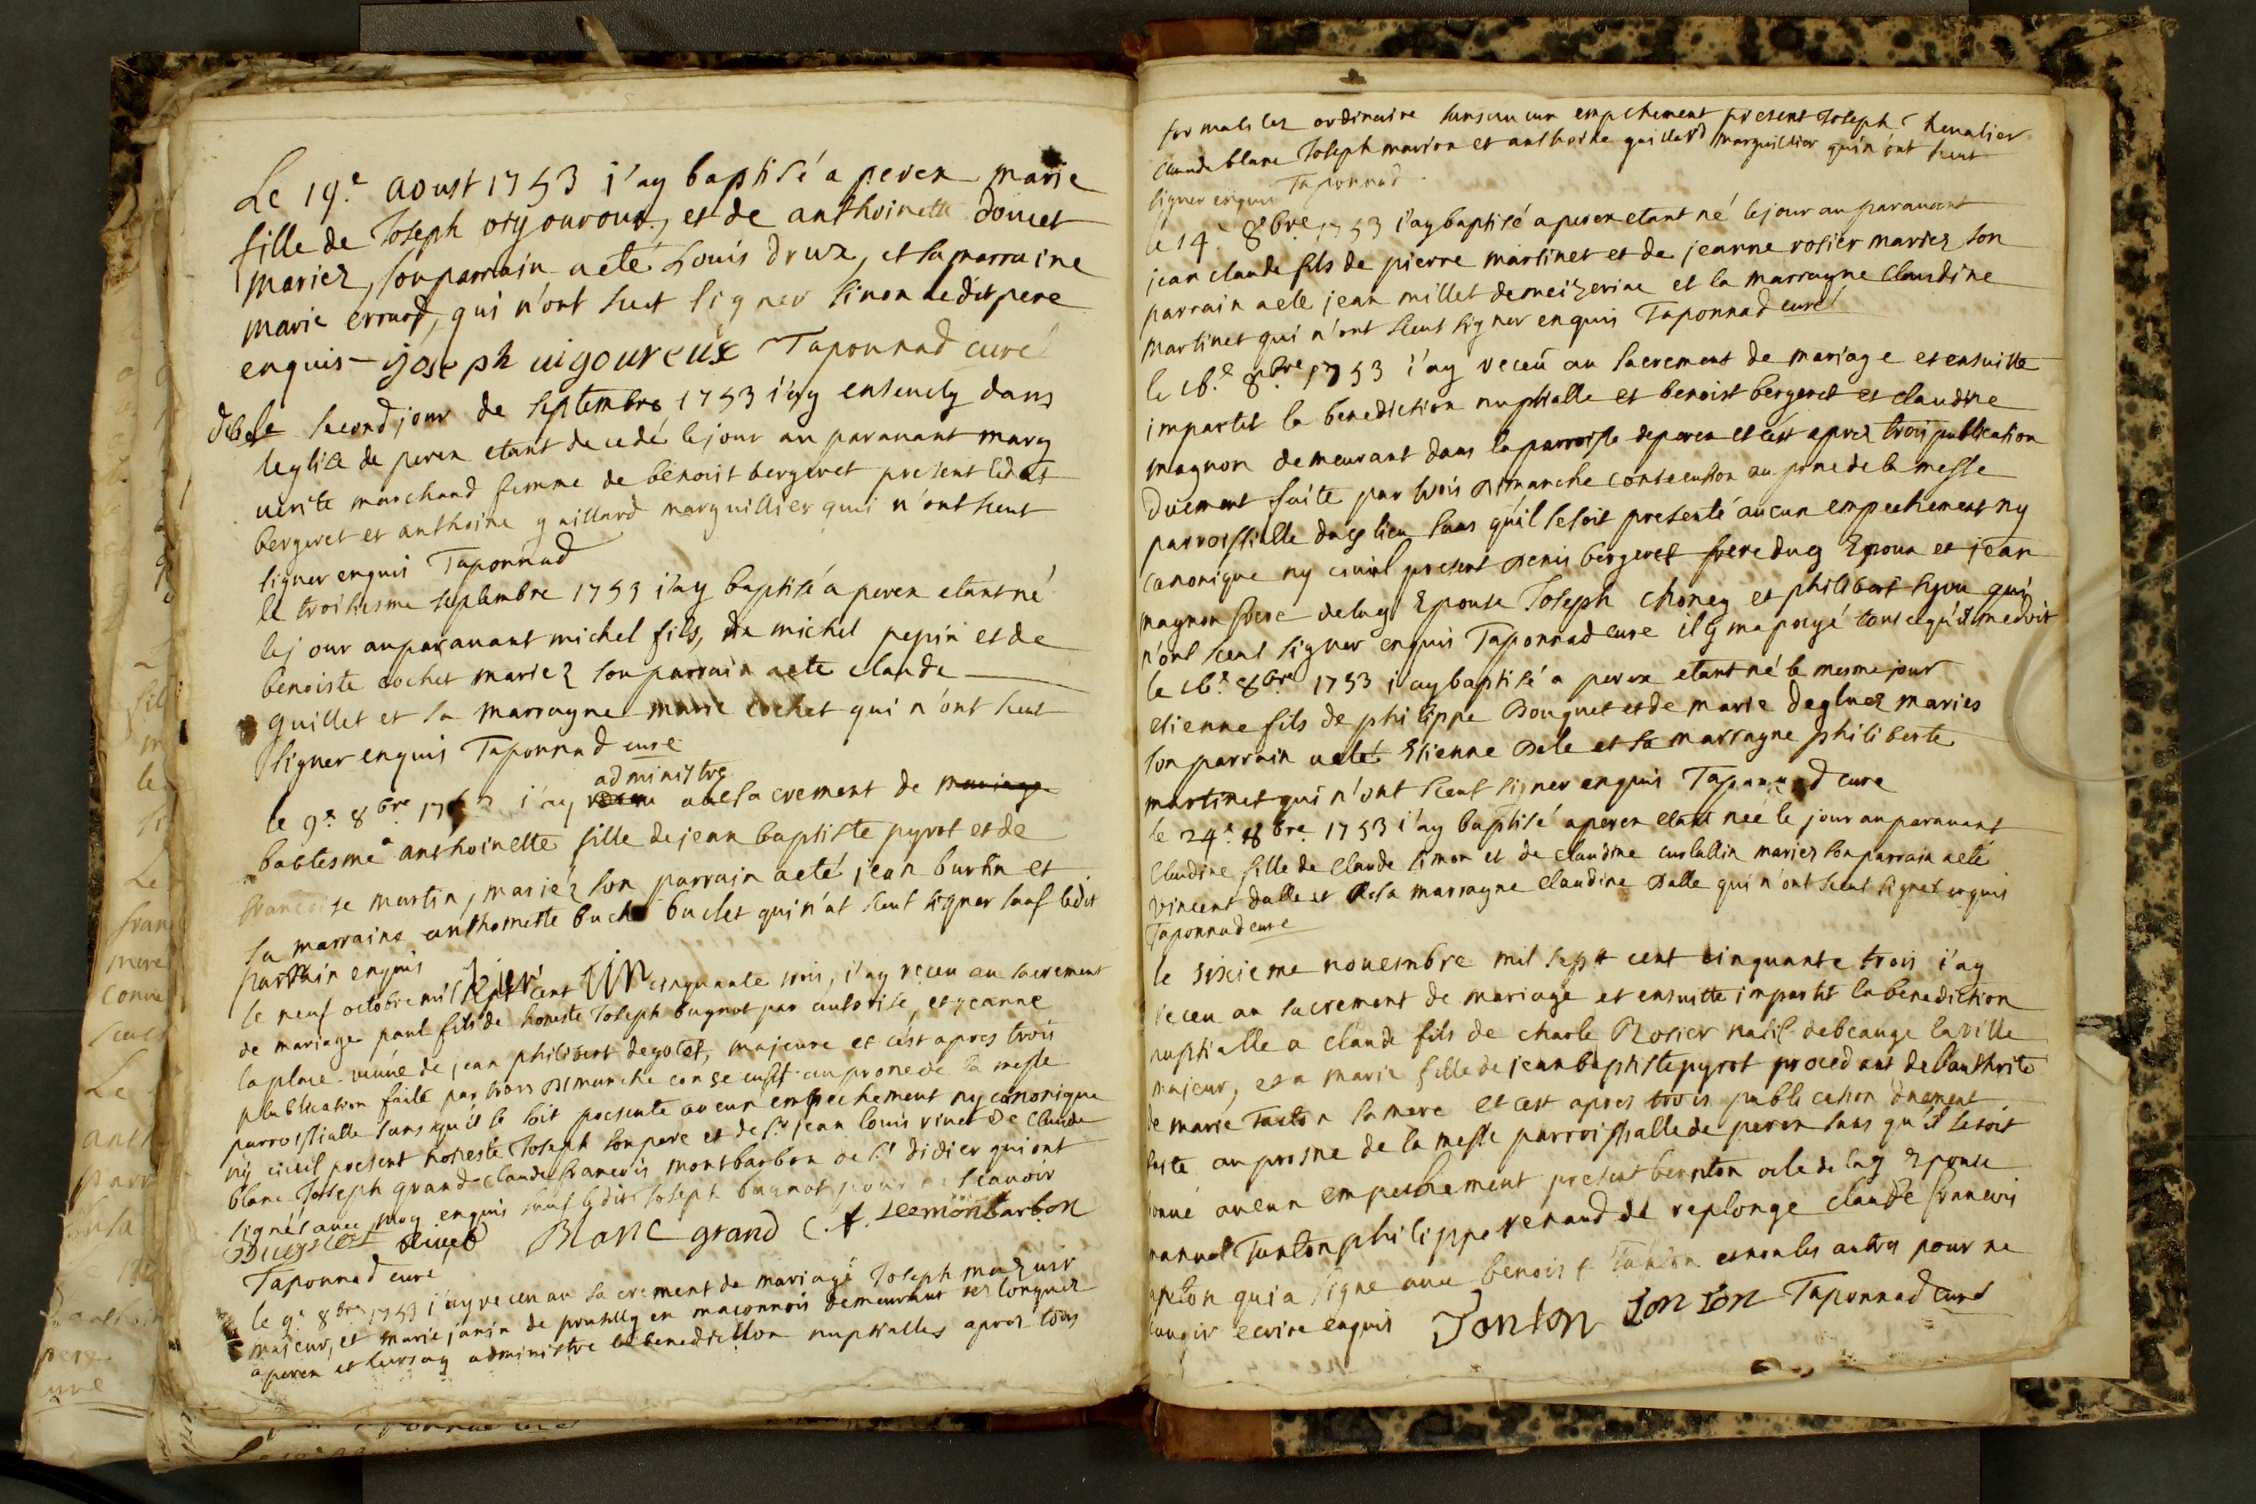 Le 19e aoust 1753 i'ay baptisé a perex marie
fille de Joseph vigouroux, et de anthoinette doucet
mariez, son parrain a eté Louis druz, et sa marraine
marie erraud, qui n'ont sceut signer sinon ledit pere
enquis ijoseph uigoureux Taponnad curé
le second jour de septembre 1753 i'ay enseuely dans
leglise de perex etant decedé le jour au parauant marg
uerite marchand femme de benoist bergeret present ledit
bergeret et anthoine gaillard marguillier qui n'ont sceut
signer enquis Taponnad
le troisiesme septembre 1753 i'ay baptisé a perex etant né
le jour auparauant michel fils, de michel pepin et de
benoiste cochet mariez son parrain a eté claude
guillet et sa marrayne marie cochet qui n'ont sceut
signer enquis Taponnad cure
administre
le 9e 8bre i'ay au sacrement de mariage
babtesme a anthoinette fille de jean baptiste pyrot et de
francoise martin, mariéz son parrain a eté jean burtin et
sa marraine anthoinette buch buclet qui n'at sceut signer sauf ledit
parrain enquis
le neuf octobre mil sept cent cinquante trois, i'ay receu au sacrement
de mariage paul fils de honeste Joseph bugnot par autorise, et jeanne
laplace veuue de jean philibert degolet, majeure et c'est apres trois
plublication faite par trois dimanche consecutif au prone de la messe
parroissialle sans qu'il se soit presente aucun empechement ny canonique
ny ciuil present honeste Joseph son pere et de sr jean louis riuet de claude
blanc Joseph grand claude francois montbarbon de st didier qui ont
signés auec moy enquis sauf ledit Joseph bugnot pour ne scauoir
Bugniot Riuet Blanc grand C f. Demontbarbon
Taponnad cure
le 9e 8bre 1753 i'ay receu au sacrement de mariage Joseph mazuir
majeur, et marie janin de prusilly en maconnois demeurant
a perex et leurs ay administre la benediction nuptialles apres trois
formalites ordinaire sans aucun empechement present Joseph cheualier
claude blanc Joseph marion et anthoine guillard marguillier qui n'ont sceut
signer enquis Taponnad
le 14e 8bre 1753 i'ay baptisé a perex etant né le jour au parauant
jean claude fils de pierre martinet et de jeanne rosier mariez son
parrain a ete jean millet de meizeriac et la marrayne claudine
martinet qui n'ont sceut signer enquis Taponnad curé
le 16e 8bre 1753 i'ay receu au sacrement de mariage et ensuitte
impartit la benediction nuptialle et benoist bergeret et claudine
magnon demeurant dans la parroisse de perex et c'est apres trois publication
duement faite par trois dimanche consecution au prone de la messe
parroissialle du lieu sans qu'il se soit presenté aucun empechement ny
canonique ny ciuil present denis bergeret frere duq Epoux et jean
magnon frere de laq Epouse Joseph chonez et philibert qui
n'ont sceut signer enquis Taponnad cure il m'a payé tout ce qu'il me doit
le 16e 8bre 1753 i'ay baptisé a perex etant né le mesme jour
etienne fils de philippe Bouquet et de marie mariés
son parrain a eté Etienne Dele et sa marrayne philiberte
martinet qui n'ont sceut signer enquis Taponnad cure
le 24e 8bre 1753 i'ay baptisé a perex etant née le jour auparauant
Claudine fille de Claude simon et de claudine mariez son parrain a eté
vincent dalle et sa marrayne claudine Dalle qui n'ont sceut signer enquis
Taponnad cure
le sixieme nouembre mil sept cent cinquante trois i'ay
receu au sacrement de mariage et ensuitte impartit la benediction
nuptialle a claude fils de charle Rosier natif de beauge la ville
majeur, et a marie fille de jean baptiste pyrot procedant de l'authorite
de marie Tonton sa mere et c'est apres trois publication duement
faite au prosne de la messe parroissialle de perex sans qu'il se soit
trouué aucun empechement present de laq Epouse
Tonton philippe renaud de replonge claude francois
qui a signé auec benoist Tonton et non les autres pour ne
scauoir ecrire enquis Tonton Tonton Taponnad curé